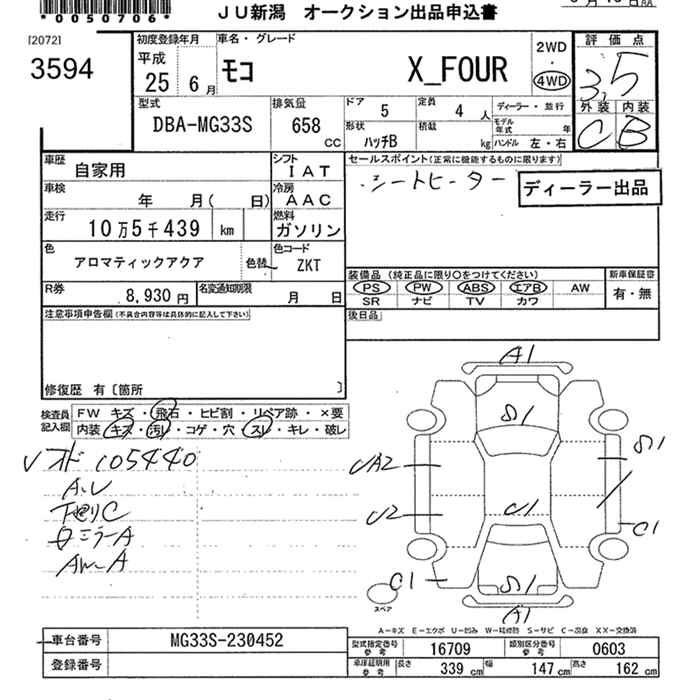 *0050706*
JU新潟 オークション出品申込書
[2072]
3594
初度登録年月 平成 25 6 月
車名・グレード モコ X_FOUR
2WD ・ 4WD
評価点 3.5
外装 内装
C B
型式 DBA-MG33S
排気量 658 CC
ドア 5
定員 4 人
形状 ハッチB
積載 kg
ディーラー・並行
モデル年式 年
ハンドル 左・右
車歴 自家用
シフト IAT
車検 年 月( 日)
冷房 AAC
走行 10万5千439 km
燃料 ガソリン
色 アロマティックアクア 色替
色コード ZKT
R券 8,930 円
名変通知期限 月 日
セールスポイント(正常に機能するものに限ります)
・シートヒーター
ディーラー出品
装備品(純正品に限り○をつけてください)
PS PW ABS エアB AW
SR ナビ TV カワ
新車保証書
有・無
後日品
注意事項申告欄(不具合内容等は具体的に記入して下さい)
修復歴 有〔箇所 〕
検査員記入欄
FW キズ・飛石・ヒビ割・リペア跡・×要
内装 キズ・汚レ・コゲ・穴・スレ・キレ・破レ
105440
A1
S1
UA2
S1
U2
U1
C1
C1
S1
A1
スペア
A-キズ E-エクボ U-凹み W-補修跡 S-サビ C-腐食 XX-交換済
車台番号 MG33S-230452
登録番号
型式指定番号 参考 16709
類別区分番号 参考 0603
車庫証明用 参考 長さ 339 cm 幅 147 cm 高さ 162 cm